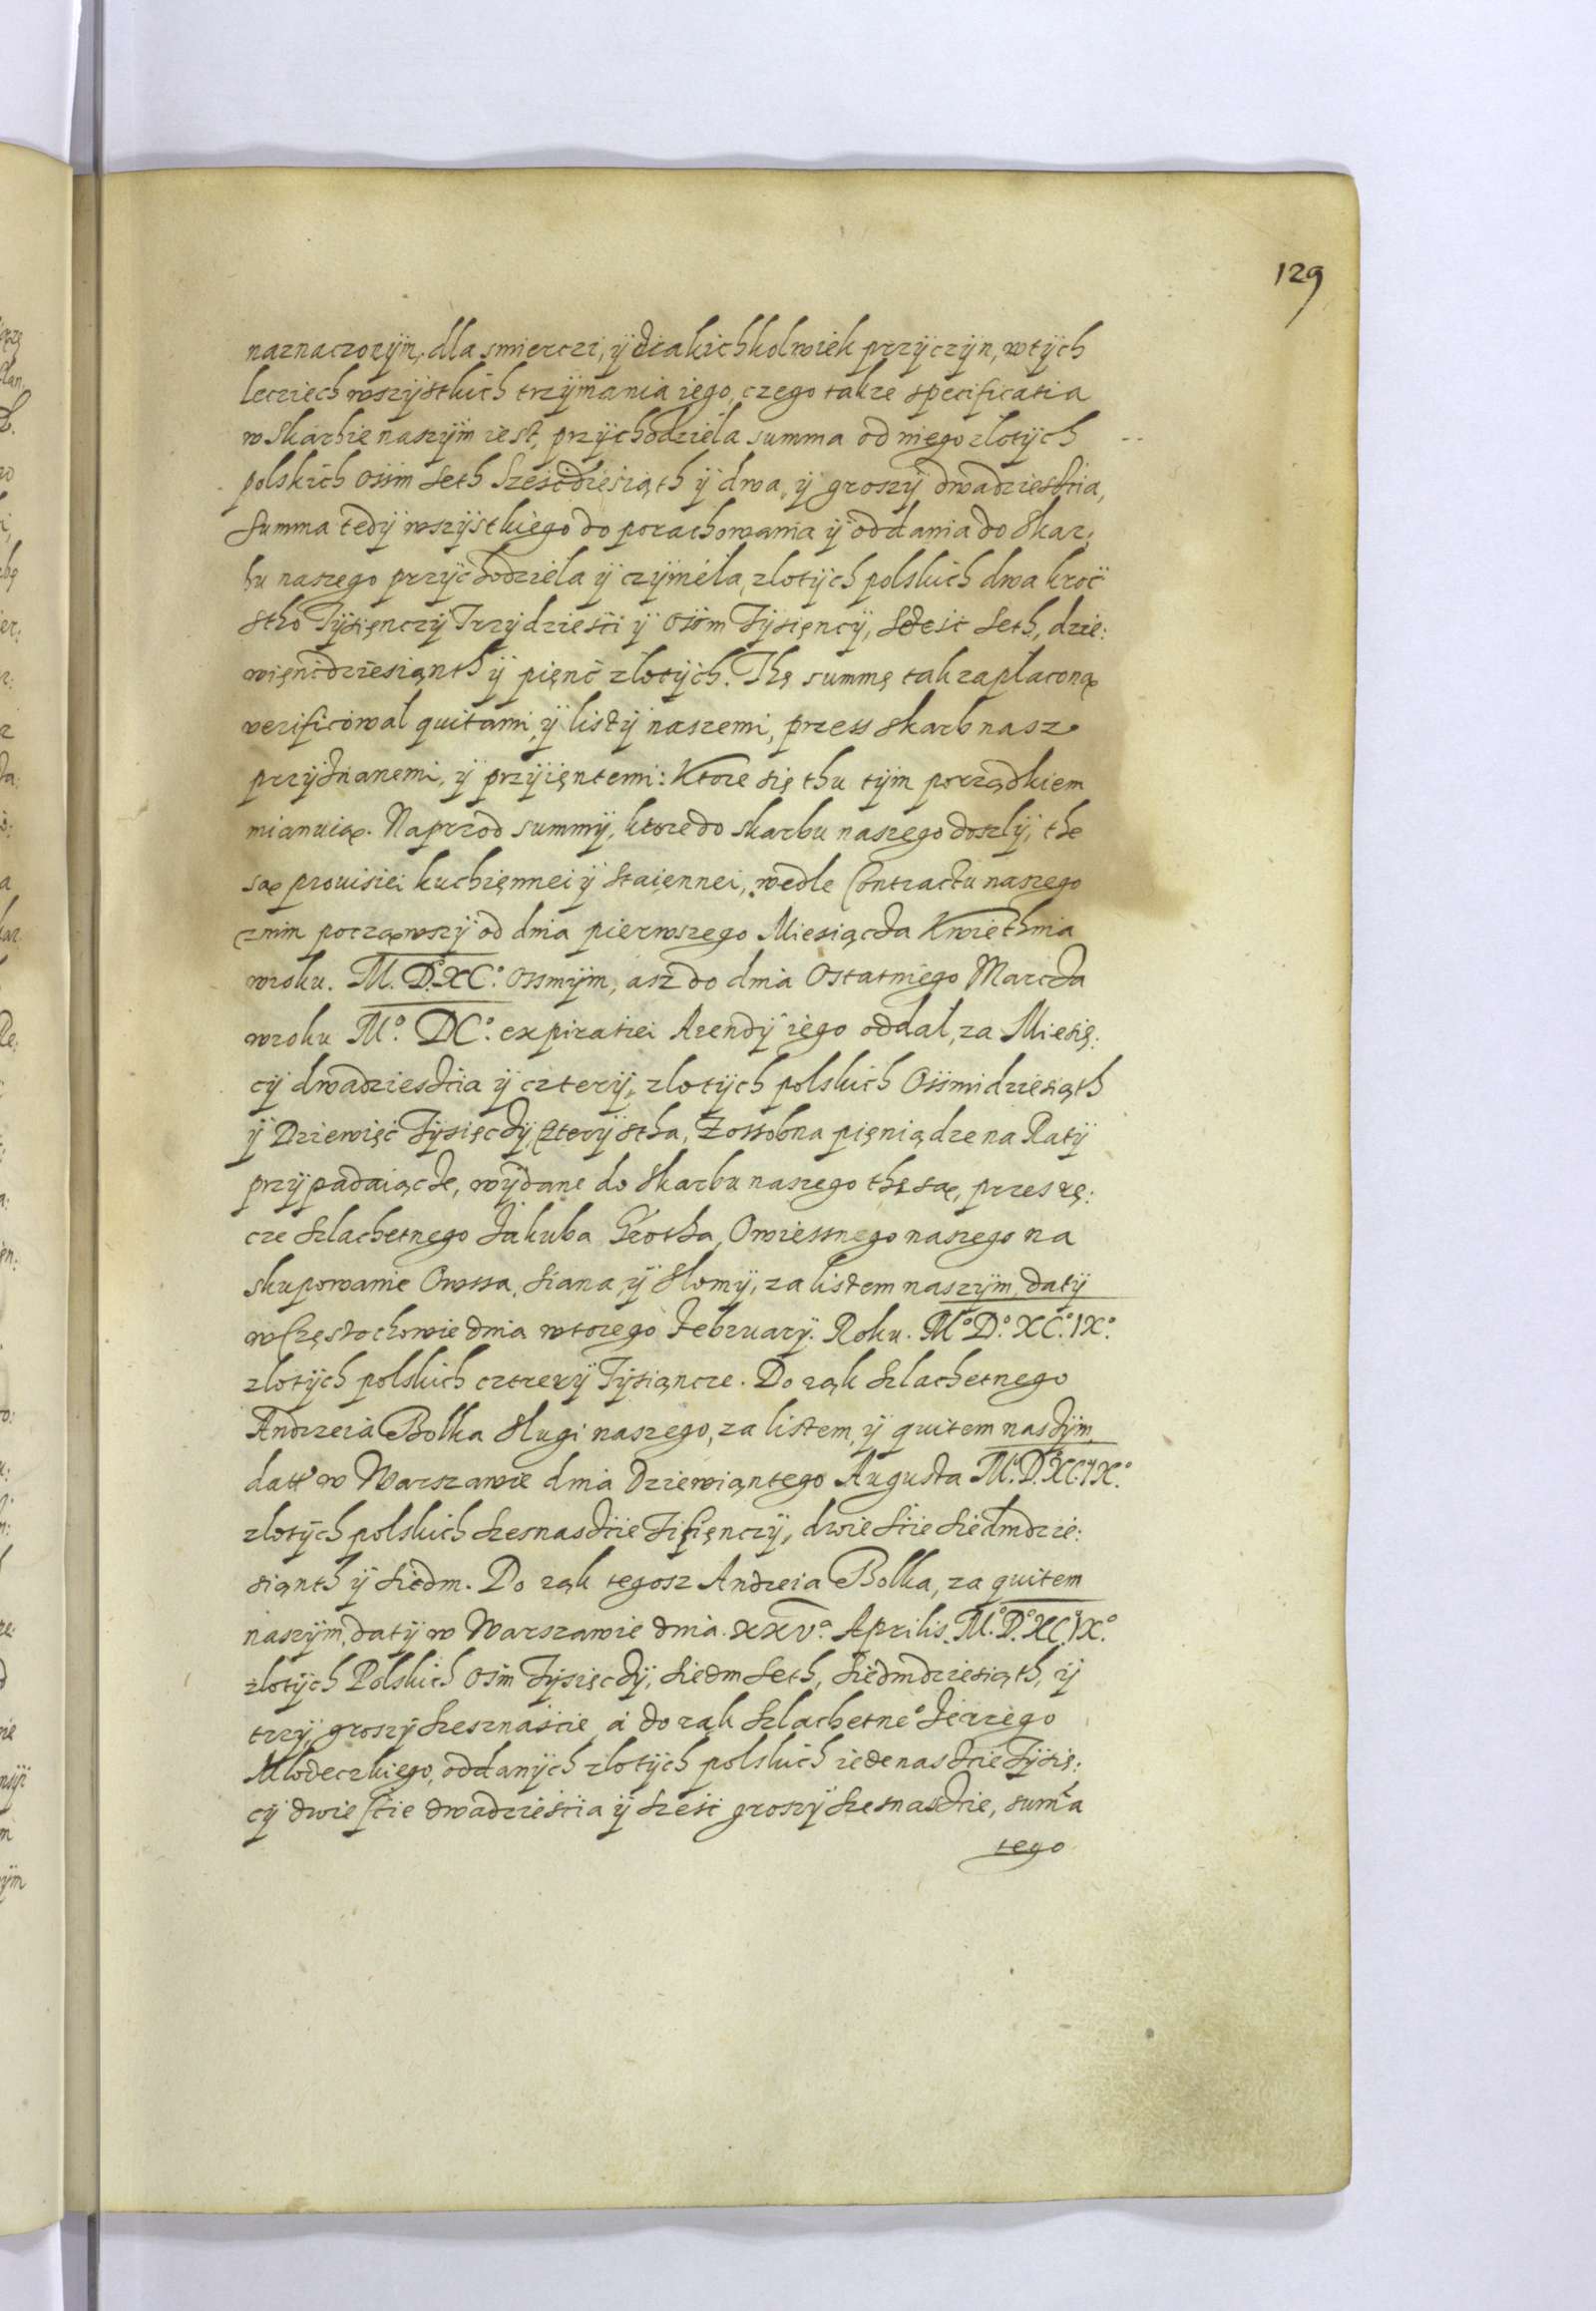 129
naznaczonÿm, dla smierczi, ÿ dla kichkolwiek przÿczÿn, wtÿch
lecziech wszÿstkich trzÿmania iego, czego takze specificatia
w Skarbie naszÿm iest, przÿchodziela summa od niego zlotÿch
polskich ossm seth Szescdziesiąth ÿ dwa, ÿ groszÿ dwadziesscia,
Summa tedÿ wszÿstkiego do porachowania ÿ oddania do Skar:
bu naszego przÿchodziela ÿ czÿniela, zlotÿch polskich dwa kroc
stho Tÿsięnczÿ Trzÿdziesci ÿ ossm Tÿsięncÿ, szesc seth, dzie:
więncdziesiąnth ÿ pięnc zlotÿch. Thę summę tak zaplaconą
verificowal quitami, ÿ listÿ naszemi, przess skarb nasz
przÿznanemi, ÿ przÿięntemi: Ktore się thu tÿm porządkiem
mianuią. Naprzod summÿ, ktore do skarbu naszego doszlÿ, the
są prouisiei kuchięnnei ÿ staiennei, wedle Contractu naszego
znim począwszÿ od dnia pierwszego Miesiącza Kwiethnia
wroku. M. D.° XC.° ossmÿm, asz do dnia Ostatniego Marcza
wroku M.° DC.° expiratiei Arendÿ iego oddal, za Miesię:
cÿ dwadziesscia ÿ czterÿ, zlotÿch polskich Ossmidziesiąth
ÿ Dziewięc Tÿsięczÿ, Czterÿstha, Zossobna pięniądze na Ratÿ
przÿpadaiącze, wÿdane do skarbu naszego the są, przes rę:
cze szlachetnego Jakuba Grotha, Owiessnego naszego na
skupowanie Owssa, siana, ÿ slomÿ, za listem naszÿm, datÿ
w Częstochowie dnia wtorego Februarÿ. Roku. M.° D.° XC.° IX.°
zlotÿch polskich czterzÿ Tÿsiąncze. Do rąk szlachetnego
Andrzeia Bolka slugi naszego, za listem, ÿ quitem naszÿm,
datt w Warszawie dnia Dziewiąntego Augusta M.° D.° XC.° IX.°
zlotÿch polskich szesnasscie Tisięnczÿ, dwie scie siedmdzie:
siąnth ÿ siedm. Do rąk tegosz Andrzeia Bolka, za quitem
naszÿm, datÿ w Warszawie dnia. xxv.a Aprilis. M.° D.° XC.° IX.°
zlotÿch Polskich osm Tÿsięczÿ, siedm seth, siedmdziesiąth, ÿ
trzÿ, groszÿ szesznascie, á do rąk szlachetne° Jerzego
Mlodeczkiego, oddanÿch zlotÿch polskich iedenasscie Tÿsię:
cÿ dwie scie dwadziescia ÿ szesc groszÿ szesnasscie, sum̃a
tego